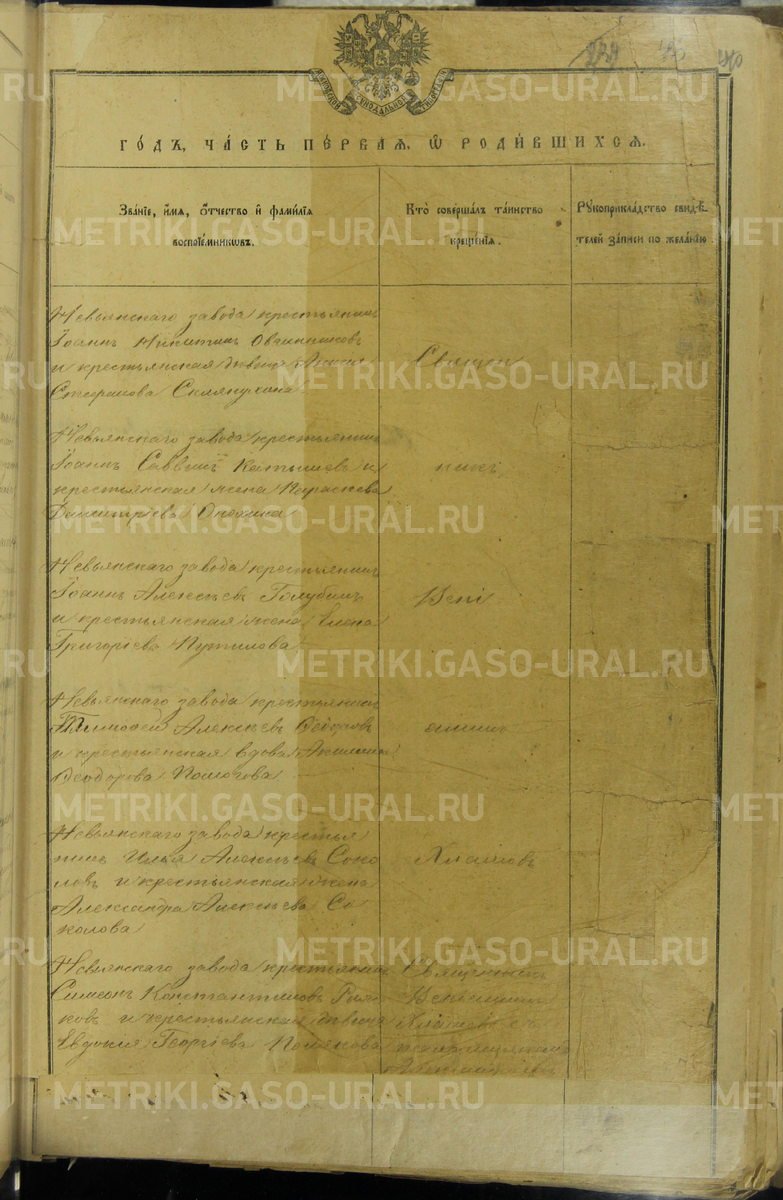 годъ, часть первая, ѡ родившихся.
Званіе, имя, отчество и фамилія воспріемниковъ.
Кто совершалъ таинство крещенія.
Рукоприкладство свидѣтелей записи по желанію.
Невьянскаго завода крестьянинъ
Іоаннъ Никитинъ Овчинниковъ
и крестьянская девица
Стефанова
Священ
Невьянскаго завода крестьянинъ
Іоаннъ Саввинъ и
крестьянская жена Параскева
Димитріева
никъ
Невьянскаго завода крестьянинъ
Іоаннъ Алексѣевъ Голубинъ
и крестьянская жена Елена
Григоріева Путилова
Вені
Невьянскаго завода крестьянинъ
Тимоѳей Алексѣевъ Ѳедоровъ
и крестьянская вдова Акилина
Ѳеодорова
аминъ
Невьянскаго завода крестья
нинъ Илья Алексѣевъ Соко
ловъ и крестьянская жена
Александра Алексѣева Со
колова
Хлатовъ
Невьянскаго завода крестьянинъ
Симеонъ Константиновъ
ковъ и крестьянская дѣвица
Евдокія Георгіева Полякова
Священникъ
Веніаминъ
METRIKI.GASO-URAL.RU